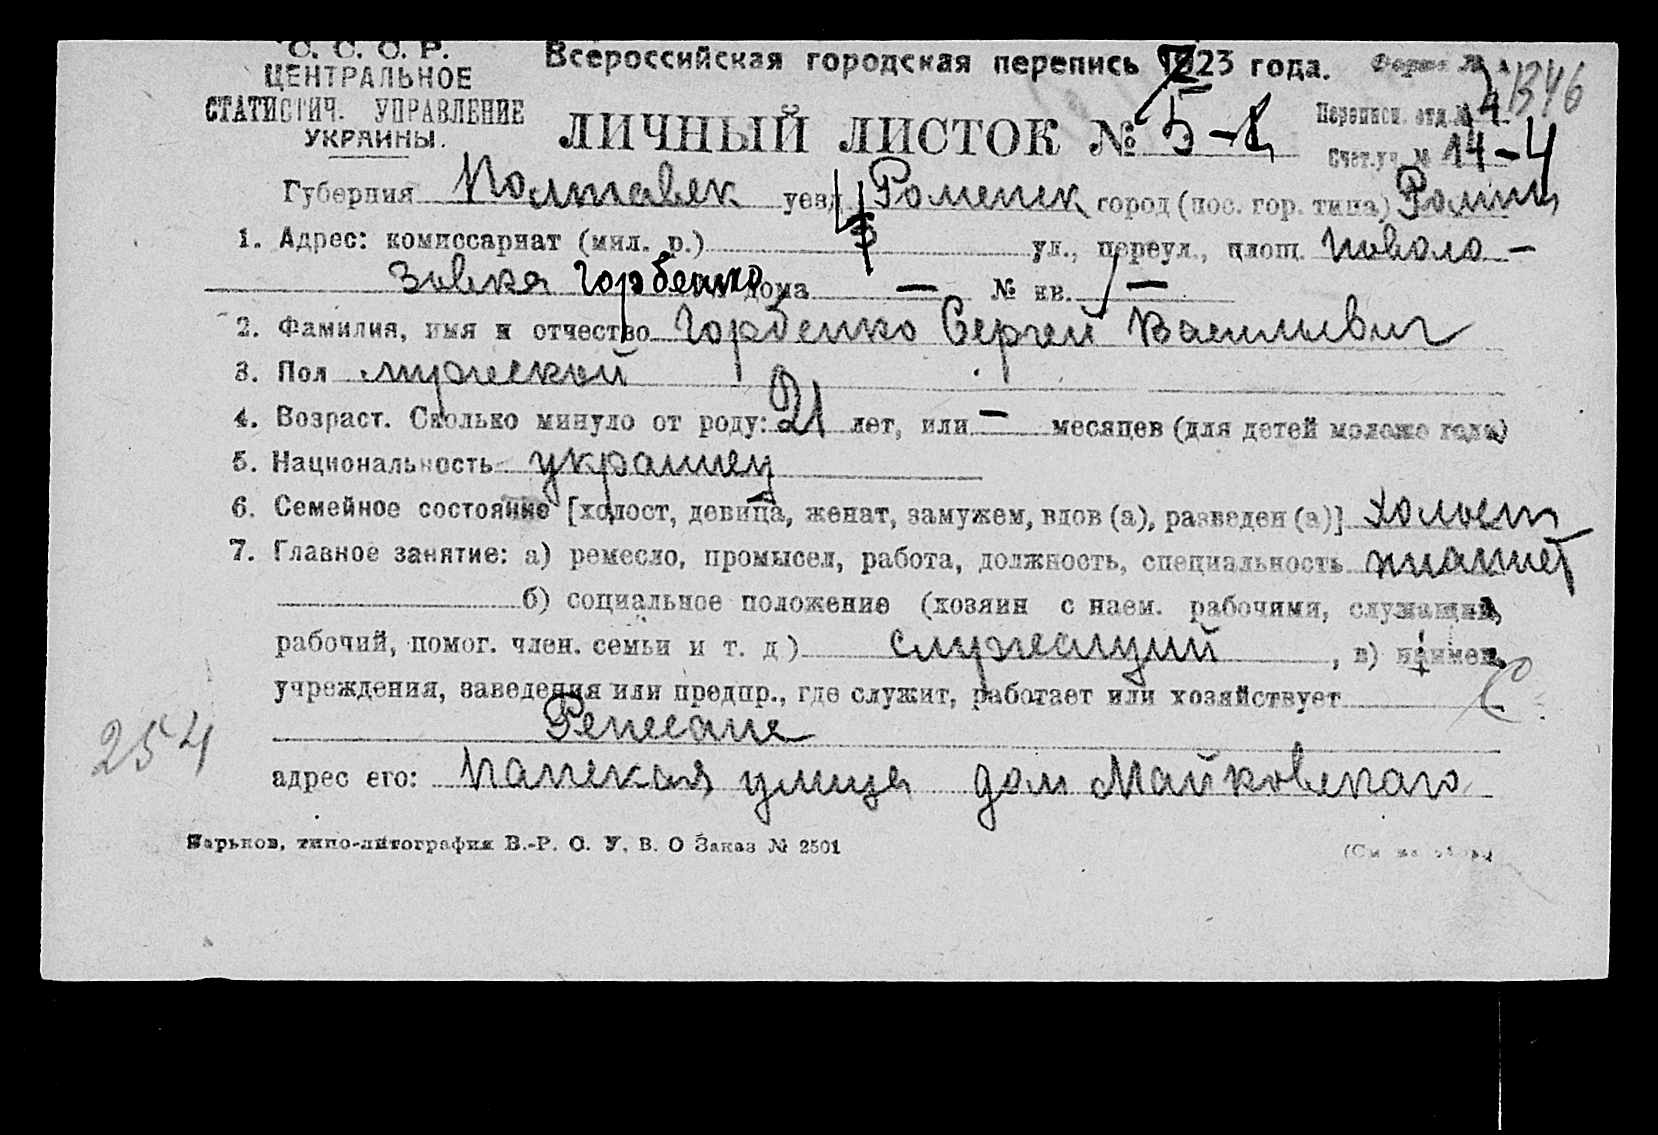 С. С. С. Р.
ЦЕНТРАЛЬНОЕ
СТАТИСТИЧ. УПРАВЛЕНИЕ
УКРАИНЫ.
Всероссийская городская перепись 1923 года.
Форма №
1346
ЛИЧНЫЙ ЛИСТОК №
Переписн. отд. № 4
Счет.уч. № 14-4
Губерния Полтавск уезд Роменск город (пос. гор. типа) Ромны
1. Адрес: комиссариат (мил. р.) ул., переул., площ. Новоло-
зовка Горбенко дома — № кв. —
2. Фамилия, имя и отчество Горбенко Сергей Васильевич
3. Пол мужеской
4. Возраст. Сколько минуло от роду: 21 лет, или — месяцев (для детей моложе года)
5. Национальность украинец
6. Семейное состояние [холост, девица, женат, замужем, вдов (а), разведен (а)] холост
7. Главное занятие: а) ремесло, промысел, работа, должность, специальность пианист
б) социальное положение (хозяин с наем. рабочими, служащий,
рабочий, помог. член. семьи и т. д) служащий, в) наимен.
учреждения, заведения или предпр., где служит, работает или хозяйствует
Ренесанс
254
адрес его: Панская улица дом Майковского
Харьков, типо-литография В.-Р. О. У. В. О Заказ № 2501